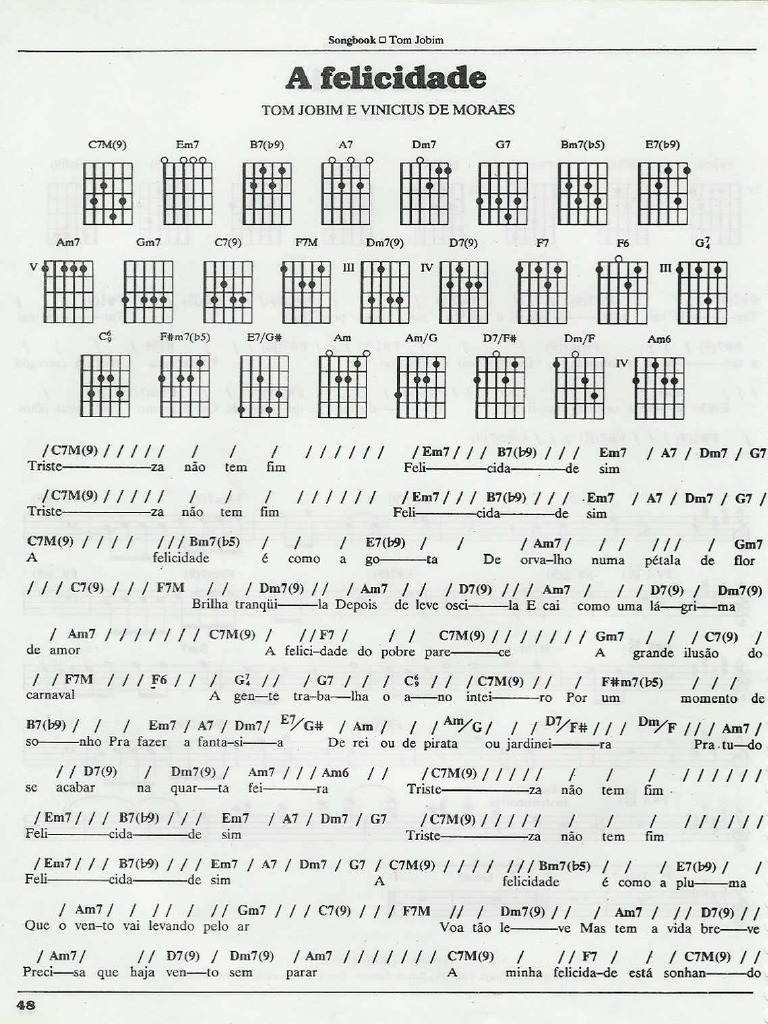 Songbook □ Tom Jobim
A felicidade
TOM JOBIM E VINICIUS DE MORAES
C7M(9) Em7 B7(b9) A7 Dm7 G7 Bm7(b5) E7(b9)
Am7 Gm7 C7(9) F7M Dm7(9) D7(9) F7 F6 G7/4
V III IV III
C6/9 F#m7(b5) E7/G# Am Am/G D7/F# Dm/F Am6
IV
/ C7M(9) / / / / / / / / / / / / / / / / Em7 / / / B7(b9) / / / Em7 / A7 / Dm7 / G7
Triste————za não tem fim Feli———cida———de sim
/ C7M(9) / / / / / / / / / / / / / / / / Em7 / / / B7(b9) / / / Em7 / A7 / Dm7 / G7 /
Triste————za não tem fim Feli———cida———de sim
C7M(9) / / / / / / / Bm7(b5) / / / E7(b9) / / / Am7 / / / / / / / Gm7
A felicidade é como a go——ta De orva—lho numa pétala de flor
/ / / C7(9) / / / F7M / / / Dm7(9) / / / Am7 / / / D7(9) / / / Am7 / / / D7(9) / Dm7(9)
Brilha tranqüi——la Depois de leve osci——la E cai como uma lá—gri—ma
/ Am7 / / / / / / / C7M(9) / / / F7 / / / C7M(9) / / / / / / / Gm7 / / / C7(9) /
de amor A felici-dade do pobre pare———ce A grande ilusão do
/ / F7M / / / F6 / / / G7/4 / / / G7 / / / C6/9 / / / C7M(9) / / / F#m7(b5) / / /
carnaval A gen—te tra-ba—lha o a—no intei——ro Por um momento de
B7(b9) / / / Em7 / A7 / Dm7 / E7/G# / Am / / / Am/G / / / D7/F# / / / Dm/F / / / Am7 /
so——nho Pra fazer a fanta-si——a De rei ou de pirata ou jardinei——ra Pra tu—do
/ / D7(9) / Dm7(9) / Am7 / / / Am6 / / / C7M(9) / / / / / / / / / / / / / /
se acabar na quar—ta fei——ra Triste————za não tem fim
/ Em7 / / / B7(b9) / / / Em7 / A7 / Dm7 / G7 / C7M(9) / / / / / / / / / / / / / /
Feli———cida———de sim Triste————za não tem fim
/ Em7 / / / B7(b9) / / / Em7 / A7 / Dm7 / G7 / C7M(9) / / / / / / / Bm7(b5) / / / E7(b9) / /
Feli———cida———de sim A felicidade é como a plu——ma
/ Am7 / / / / / / / Gm7 / / / C7(9) / / / F7M / / / Dm7(9) / / / Am7 / / / D7(9) / /
Que o ven-to vai levando pelo ar Voa tão le——ve Mas tem a vida bre—ve
/ Am7 / / / D7(9) / Dm7(9) / Am7 / / / / / / / C7M(9) / / / F7 / / / C7M(9) / /
Preci—sa que haja ven—to sem parar A minha felicida-de está sonhan——do
48